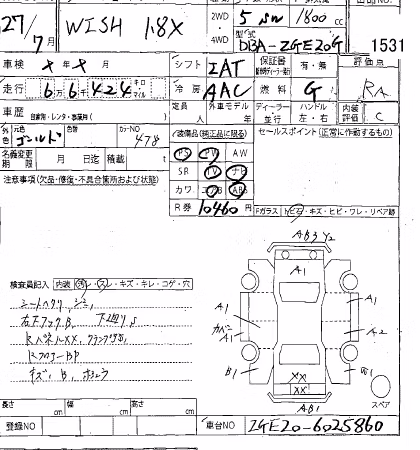 27/7月 WISH 1.8X 2WD 4WD 5 1800 cc
型式 DBA-ZGE20G 1531
車検 シフト IAT 保証書 有・無 評価点
走行 66424 キロ マイル 冷房 AAC 燃料 G RA
車歴 自家用・レンタ・事業用( ) 定員 人 外車モデル 年 ディーラー 並行 ハンドル 左・右 内装評価 C
外色 元色 ゴールド 色替 カラーNO 478 装備品(純正品に限る) セールスポイント(正常に作動するもの)
名義変更期限 月 日迄 積載 t PS PW AW
注意事項(欠品・修復・不具合箇所および状態) SR TV ナビ
カワ エアB ABS
R券 10460円 Fガラス トビ石・キズ・ヒビ・ワレ・リペア跡
AB3 Y2
A1
検査員記入 内装 汚レ・スレ・キズ・キレ・コゲ・穴
A1 A1
シートヘタリ、シミ
右下フックB、下廻りS
カバー A1 A2
RバネルXX、クランプキズ
RフロアーBP
B1 B1
キズ、B、ホシュウ
XX
XX
AB1
スペア
長さ cm 幅 cm 高さ cm
登録NO 車台NO ZGE20-6025860